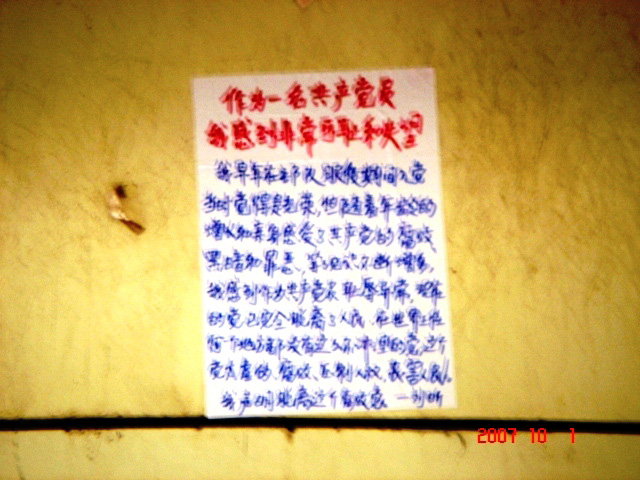 作为一名共产党员
我感到非常可耻和失望
我早年在部队服役期间入党
当时觉得是光荣,但随着年龄的
增长和亲身感受了共产党的腐败
黑暗和罪恶、
我感到作为共产党员耻辱异常,现在
的党已完全脱离了人民,在世界上任
何一个地方都没有这么
党,腐败、人权、残害人民。
我声明脱离这个腐败党
2007 10 1